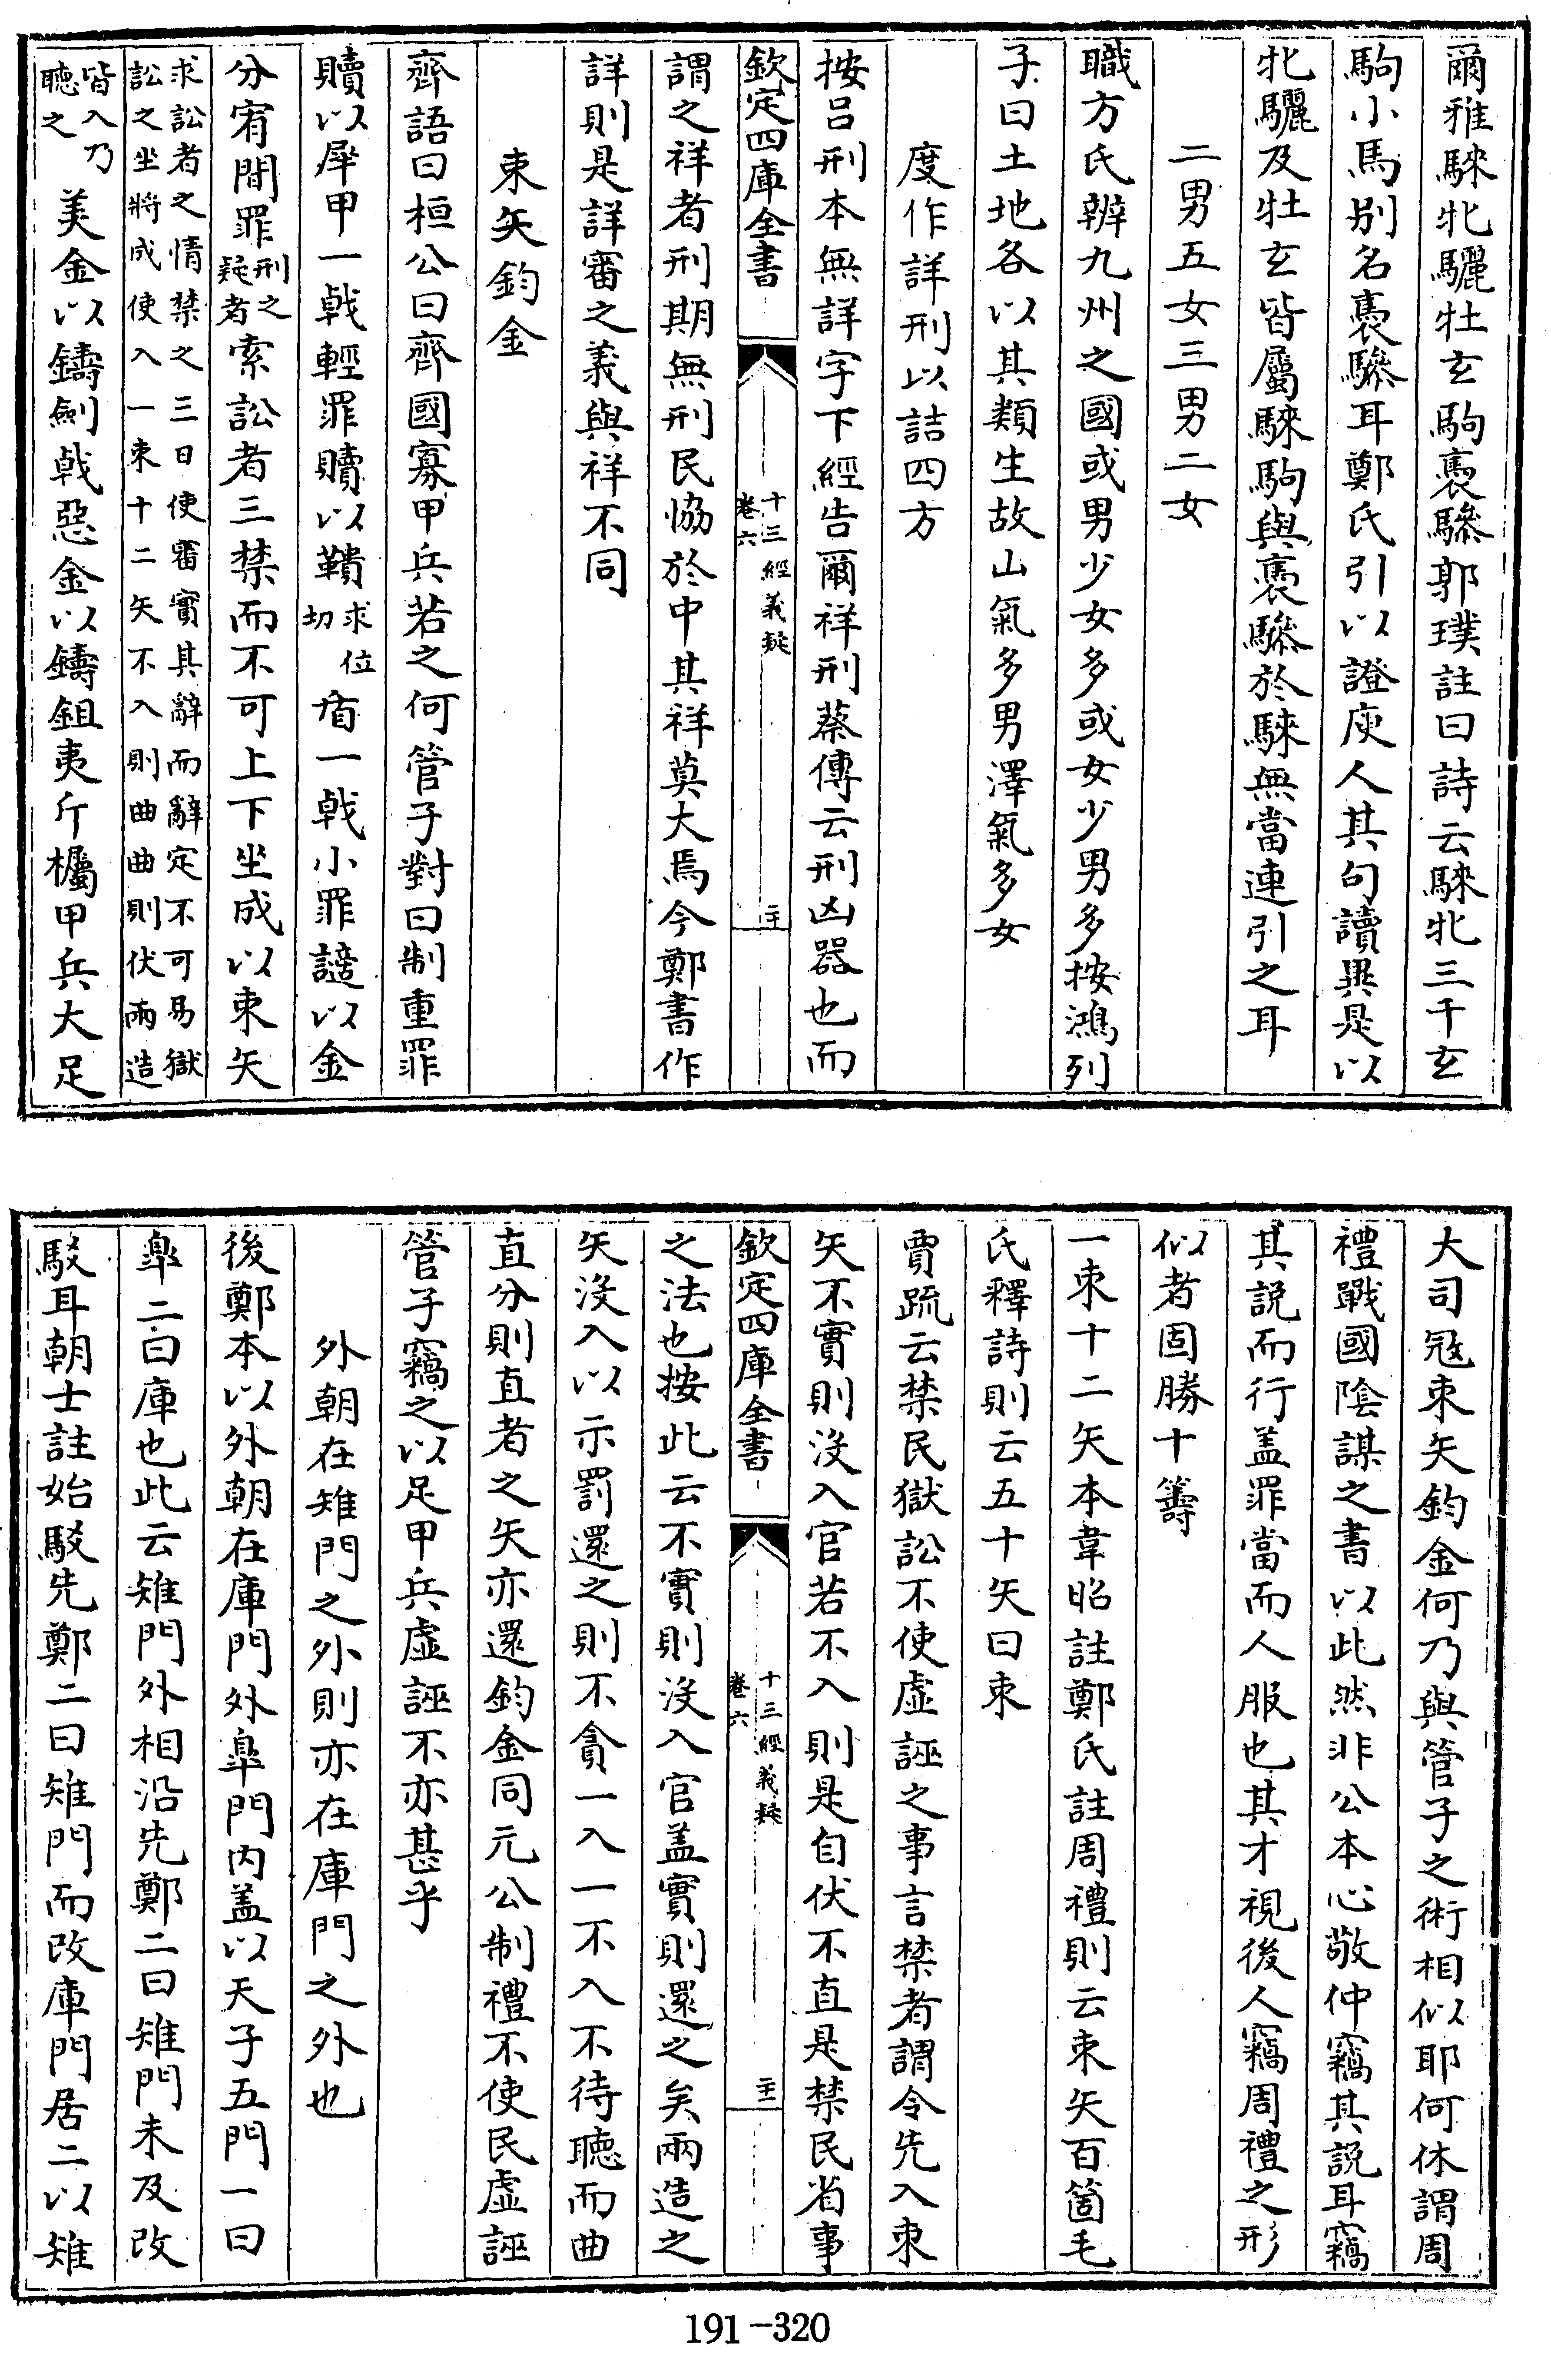 爾雅騋牝驪牡玄駒褭驂郭璞註曰詩云騋牝三千玄
駒小馬别名褭驂耳鄭氏引以證庾人其句讀異是以
牝驪及牡玄皆屬騋駒與褭驂於騋無當連引之耳
二男五女三男二女
職方氏辨九州之國或男少女多或女少男多按鴻列
子曰土地各以其類生故山氣多男澤氣多女
度作詳刑以詰四方
按吕刑本無詳字下經告爾祥刑蔡傳云刑凶器也而
欽定四庫全書
十三經義疑
卷六
二十
謂之祥者刑期無刑民協於中其祥莫大焉今鄭書作
詳則是詳審之義與祥不同
束矢鈞金
齊語曰桓公曰齊國寡甲兵若之何管子對曰制重罪
贖以犀甲一戟輕罪贖以鞼求位切盾一戟小罪讁以金
分宥閒罪刑之疑者索訟者三禁而不可上下坐成以束矢
求訟者之情禁之三日使審實其辭而辭定不可易獄
訟之坐將成使入一束十二矢不入則曲曲則伏兩造
皆入乃聽之美金以鑄劍戟惡金以鑄鉏夷斤欘甲兵大足
大司冦束矢鈞金何乃與管子之術相似耶何休謂周
禮戰國陰謀之書以此然非公本心敬仲竊其說耳竊
其説而行盖罪當而人服也其才視後人竊周禮之形
似者固勝十籌
一束十二矢本韋昭註鄭氏註周禮則云束矢百箇毛
氏釋詩則云五十矢曰束
賈疏云禁民獄訟不使虚誣之事言禁者謂令先入束
矢不實則沒入官若不入則是自伏不直是禁民省事
欽定四庫全書
十三經義疑
卷六
二十一
之法也按此云不實則沒入官盖實則還之矣兩造之
矢沒入以示罰還之則不貪一入一不入不待聽而曲
直分則直者之矢亦還鈞金同元公制禮不使民虚誣
管子竊之以足甲兵虚誣不亦甚乎
外朝在雉門之外則亦在庫門之外也
後鄭本以外朝在庫門外臯門内盖以天子五門一曰
臯二曰庫也此云雉門外相沿先鄭二曰雉門未及改
駁耳朝士註始駁先鄭二曰雉門而改庫門居二以雉
191-320